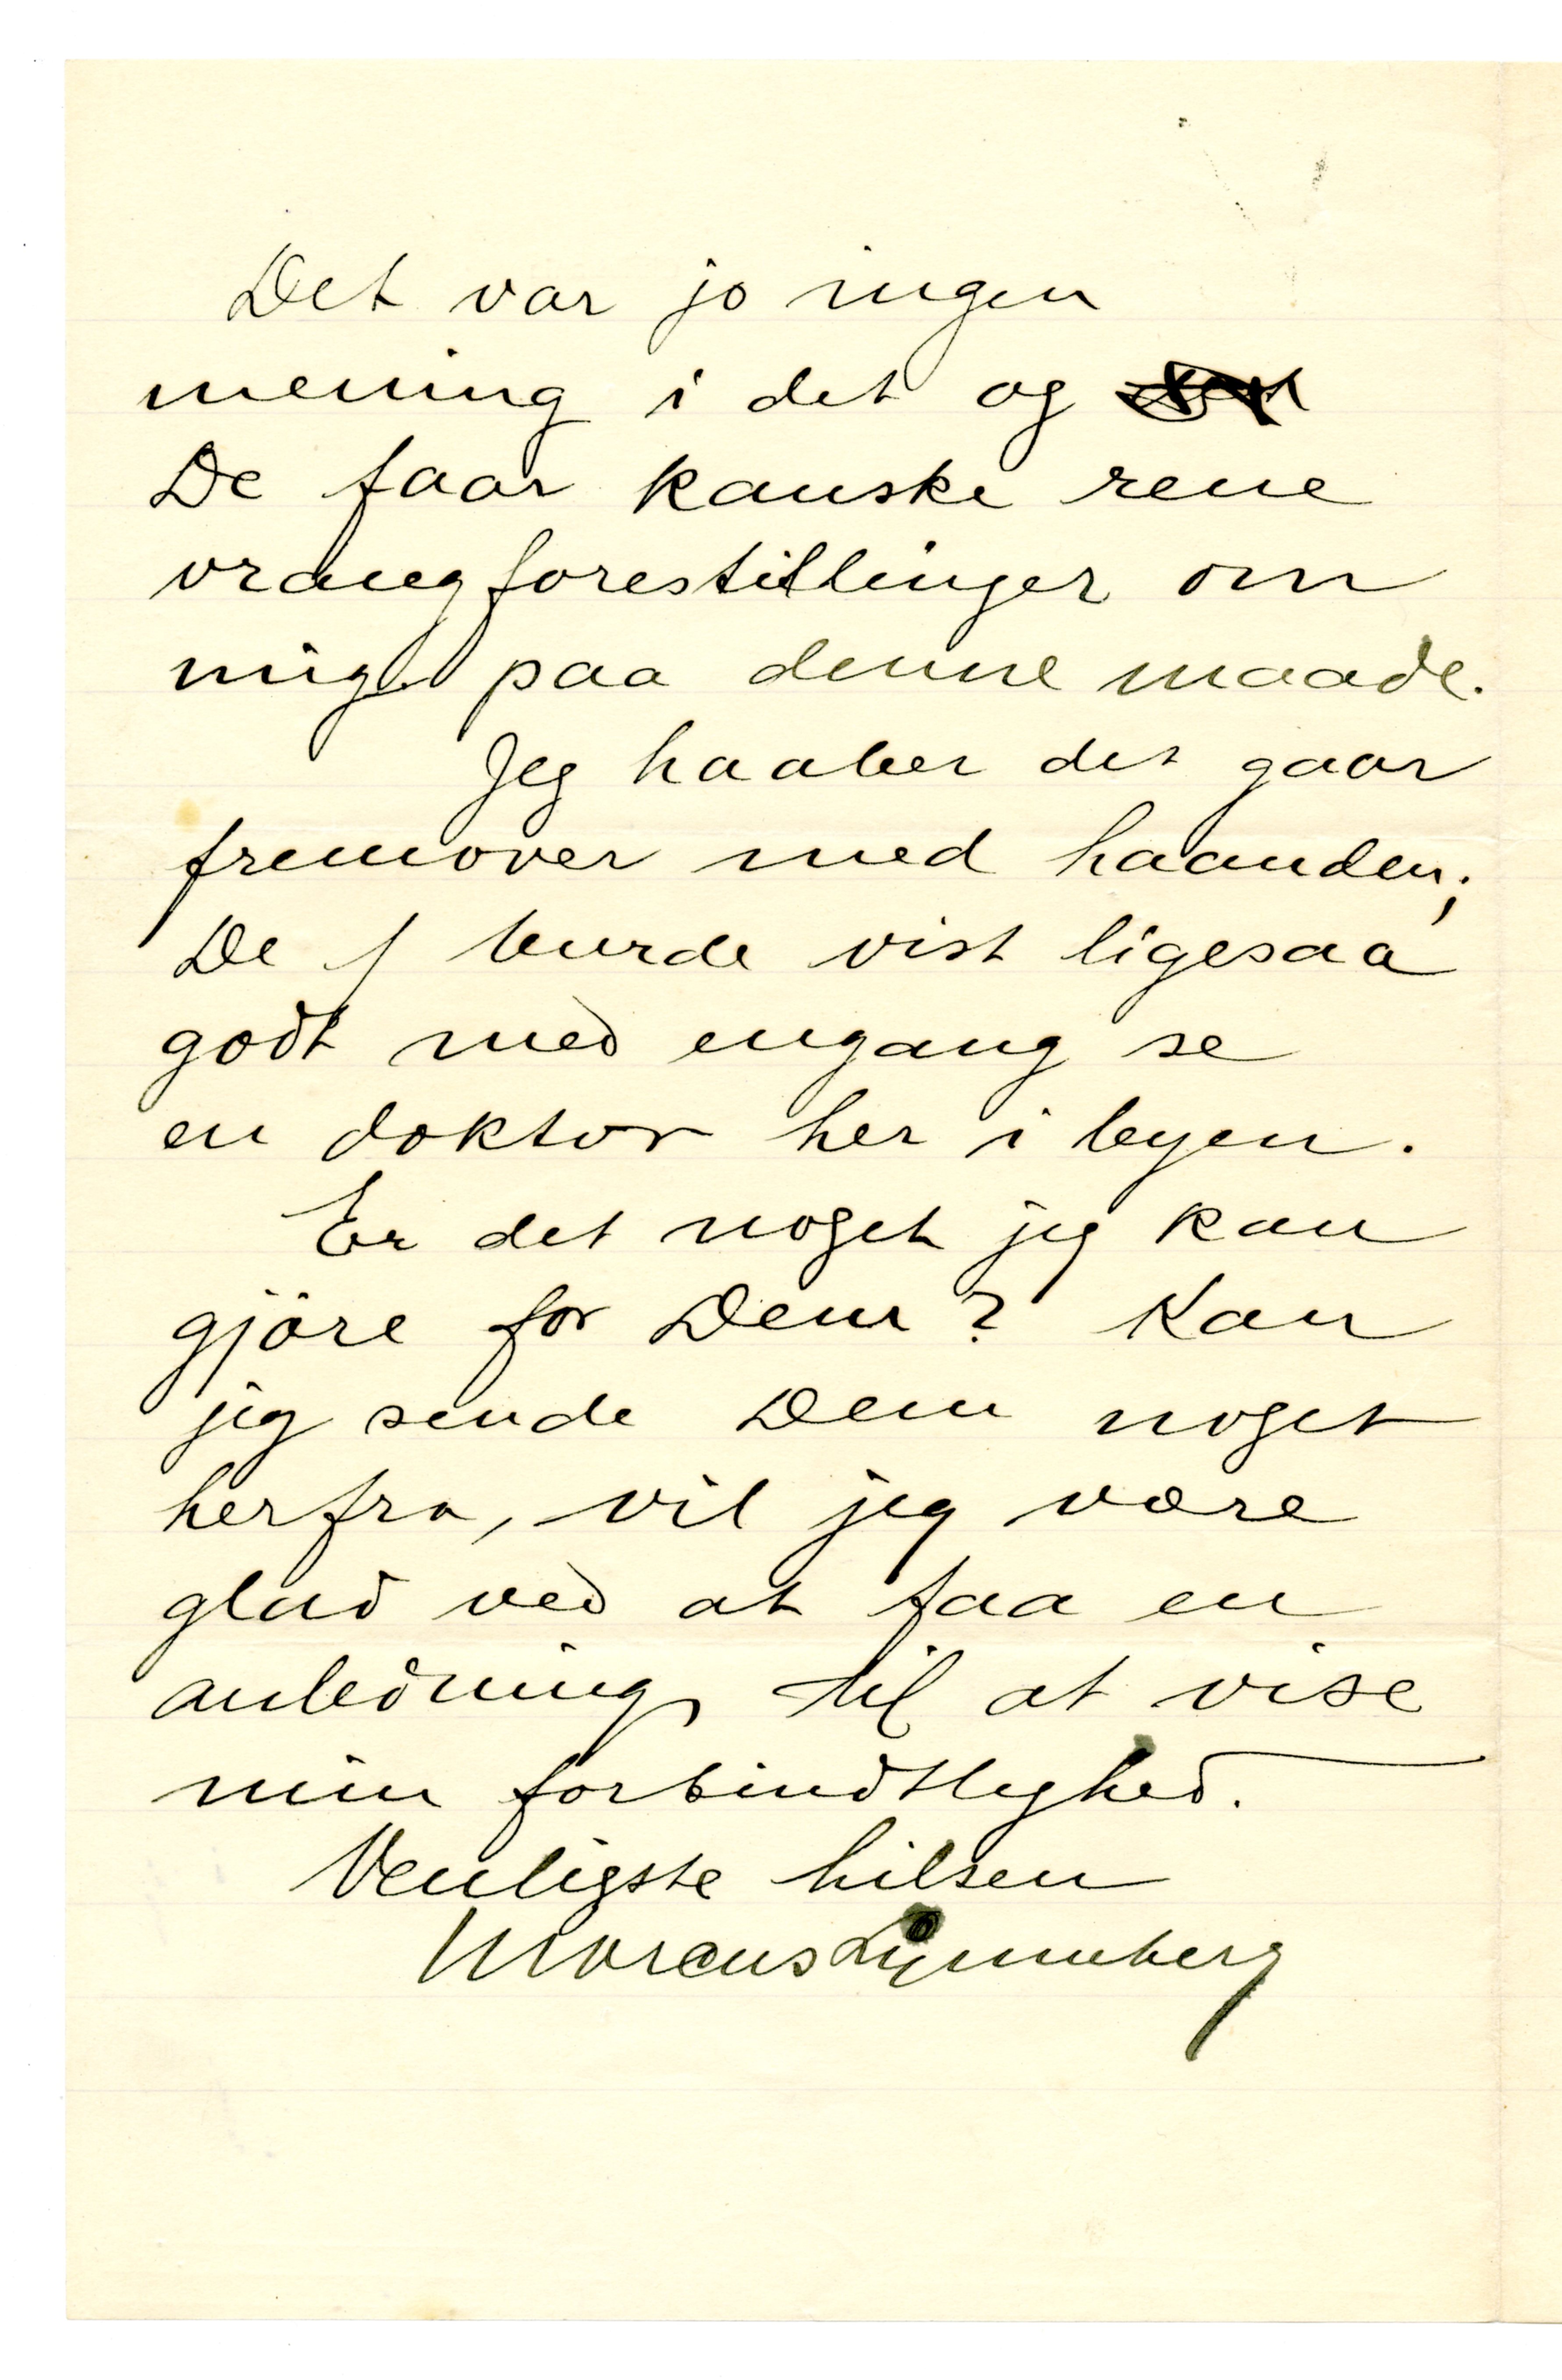 Det var jo ingen
mening i det og
De faar kanske rene
vrangforestillinger om
mig paa denne maade.
Jeg haaber det gaar
fremover med haanden;
De burde vist ligesaa
godt med engang se
en doktor her i byen.
Er det noget jeg kan
gjöre for Dem? Kan
jeg sende Dem noget
herfra, vil jeg være
glad ved at faa en
anledning til at vise
min forbindtlighed.
Venligste hilsen
Marcus Lynneberg